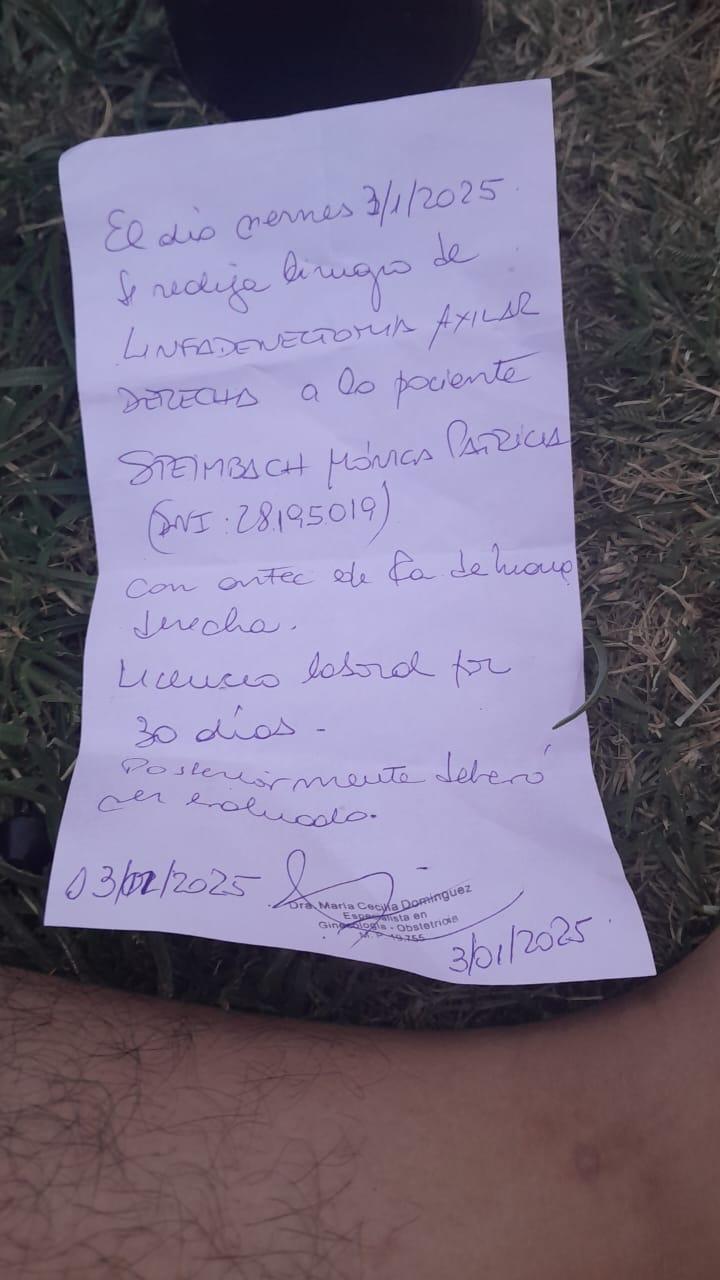 El día viernes 3/1/2025.
Se realiza cirugía de
LINFADENECTOMIA AXILAR
DERECHA a la paciente
STEIMBACH MÓNICA PATRICIA
(DNI: 28.195.019)
con antec de Ca de mama
derecha.
Licencia laboral por
30 días -
Posteriormente deberá
ser evaluada.
03/02/2025
Dra. María Cecilia Dominguez
Especialista en
Ginecología - Obstetricia
M. P. 19.755
3/01/2025.